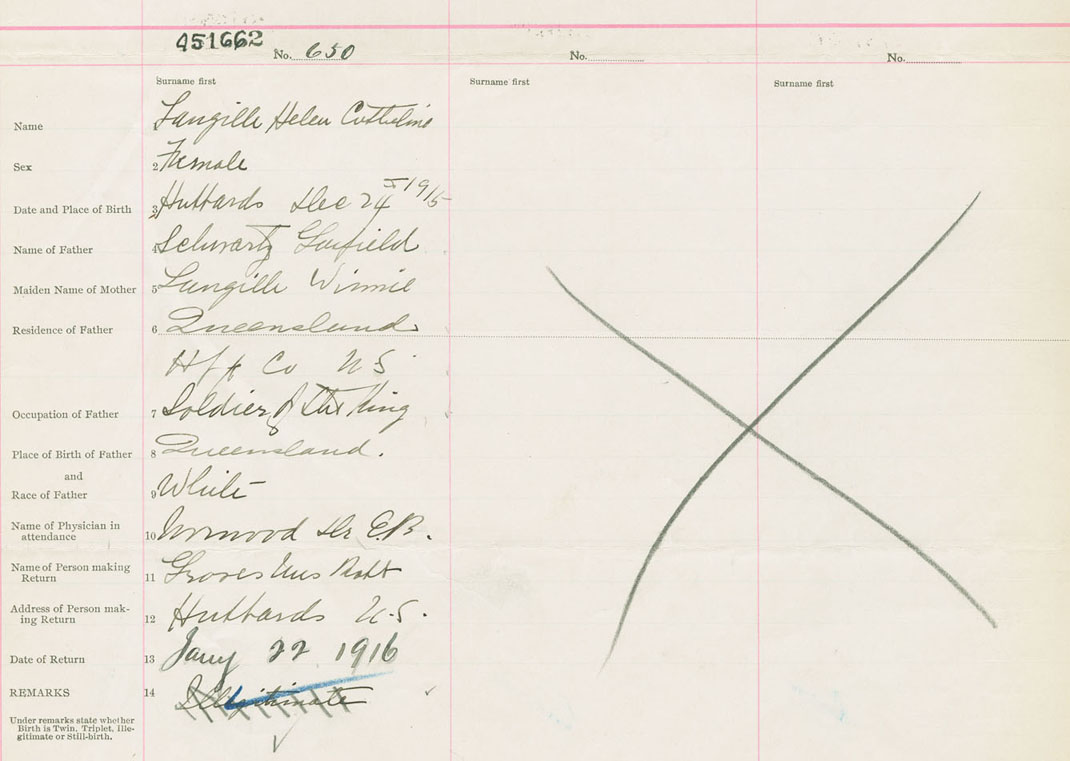 451662
No. 650
No.
No.
Surname first
Surname first
Surname first
Name 1 Langille Helen
Sex 2 Female
Date and Place of Birth 3 Hubbards Dec 24 1915
Name of Father 4 Schwartz Garfield
Maiden Name of Mother 5 Langille Winnie
Residence of Father 6 Queensland
Hfx Co N S
Occupation of Father 7 Soldier of the King
Place of Birth of Father 8 Queensland.
and
Race of Father 9 White
Name of Physician in
attendance 10 Norwood Dr E.B.
Name of Person making
Return 11 Groves Mrs Robt
Address of Person mak-
ing Return 12 Hubbards N.S.
Date of Return 13 Jany 22 1916
REMARKS 14 Illegitimate
Under remarks state whether
Birth is Twin, Triplet, Ille-
gitimate or Still-birth.